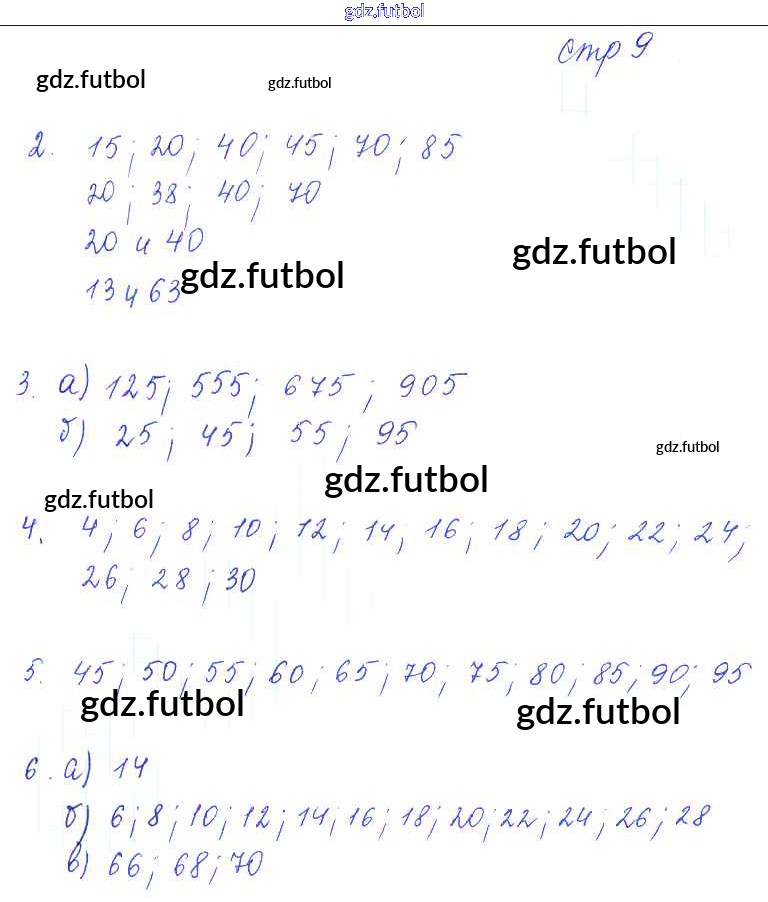 gdz.futbol
стр 9
gdz.futbol gdz.futbol
2. 15; 20; 40; 45; 70; 85
20; 38; 40; 70
20 и 40
gdz.futbol
13 и 63 gdz.futbol
3. а) 125; 555; 675; 905
б) 25; 45; 55; 95
gdz.futbol
gdz.futbol
gdz.futbol
4. 4; 6; 8; 10; 12; 14, 16; 18; 20; 22; 24;
26; 28; 30
5. 45; 50; 55; 60; 65; 70; 75; 80; 85; 90; 95
gdz.futbol gdz.futbol
6. а) 14
б) 6; 8; 10; 12; 14; 16; 18; 20; 22; 24; 26; 28
в) 66; 68; 70